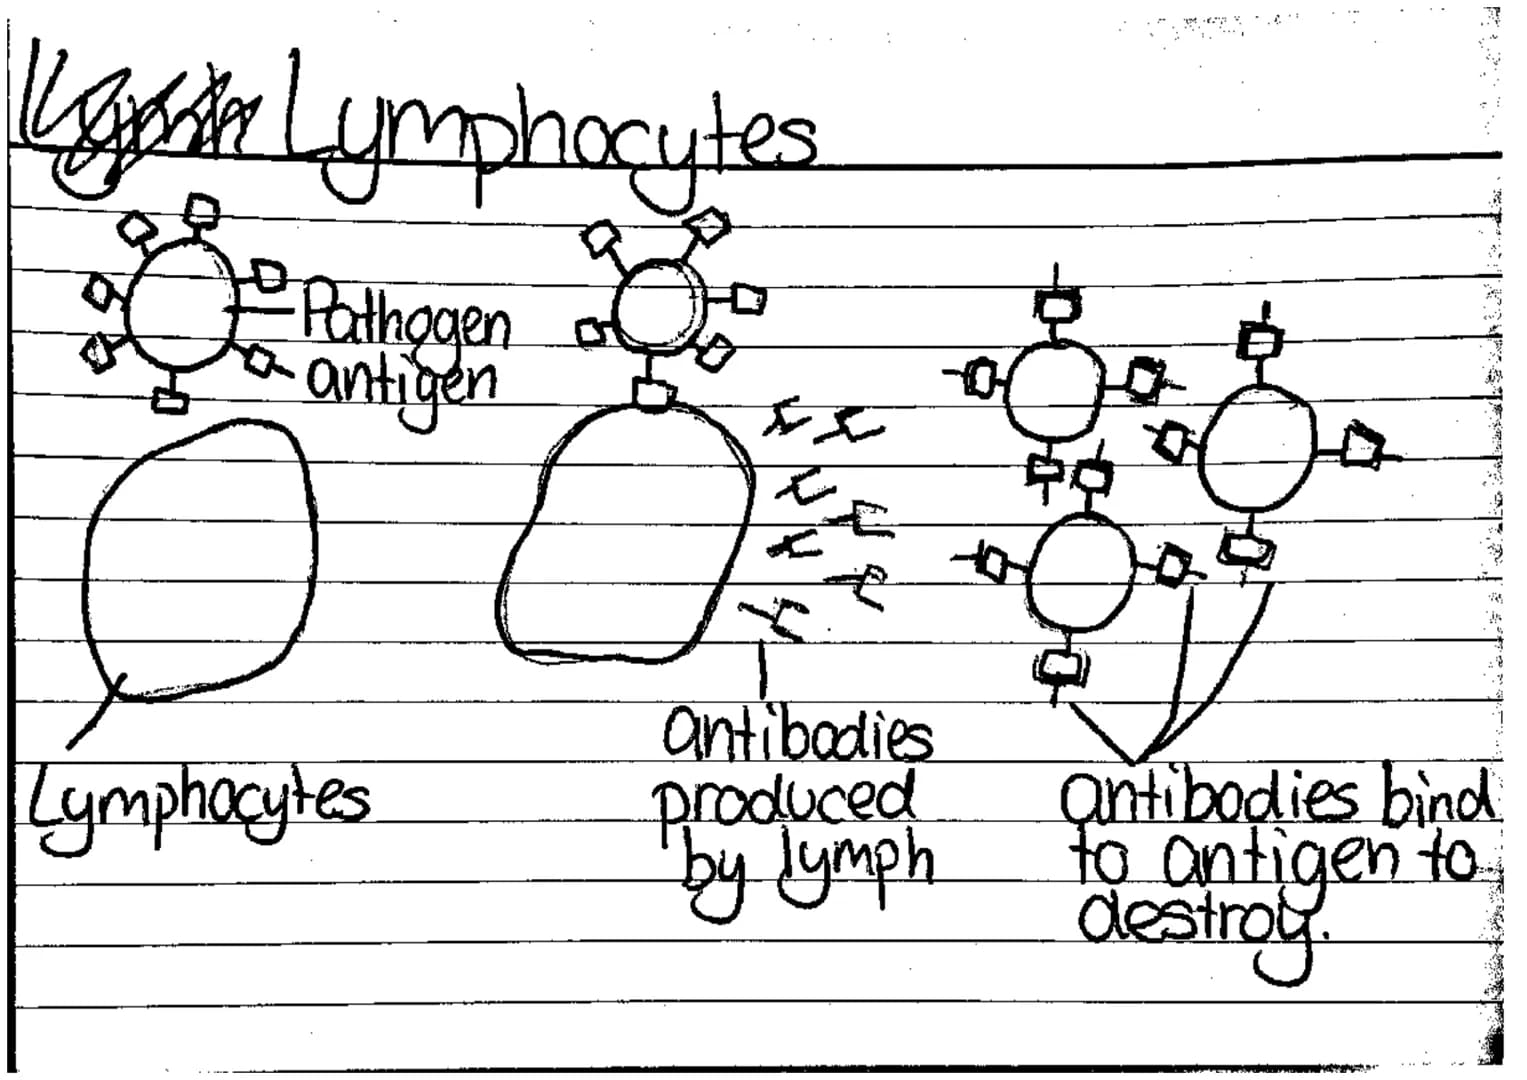 Lymphocytes
Pathogen
antigen
Lymphocytes
antibodies
produced
by lymph
antibodies bind
to antigen to
destroy.